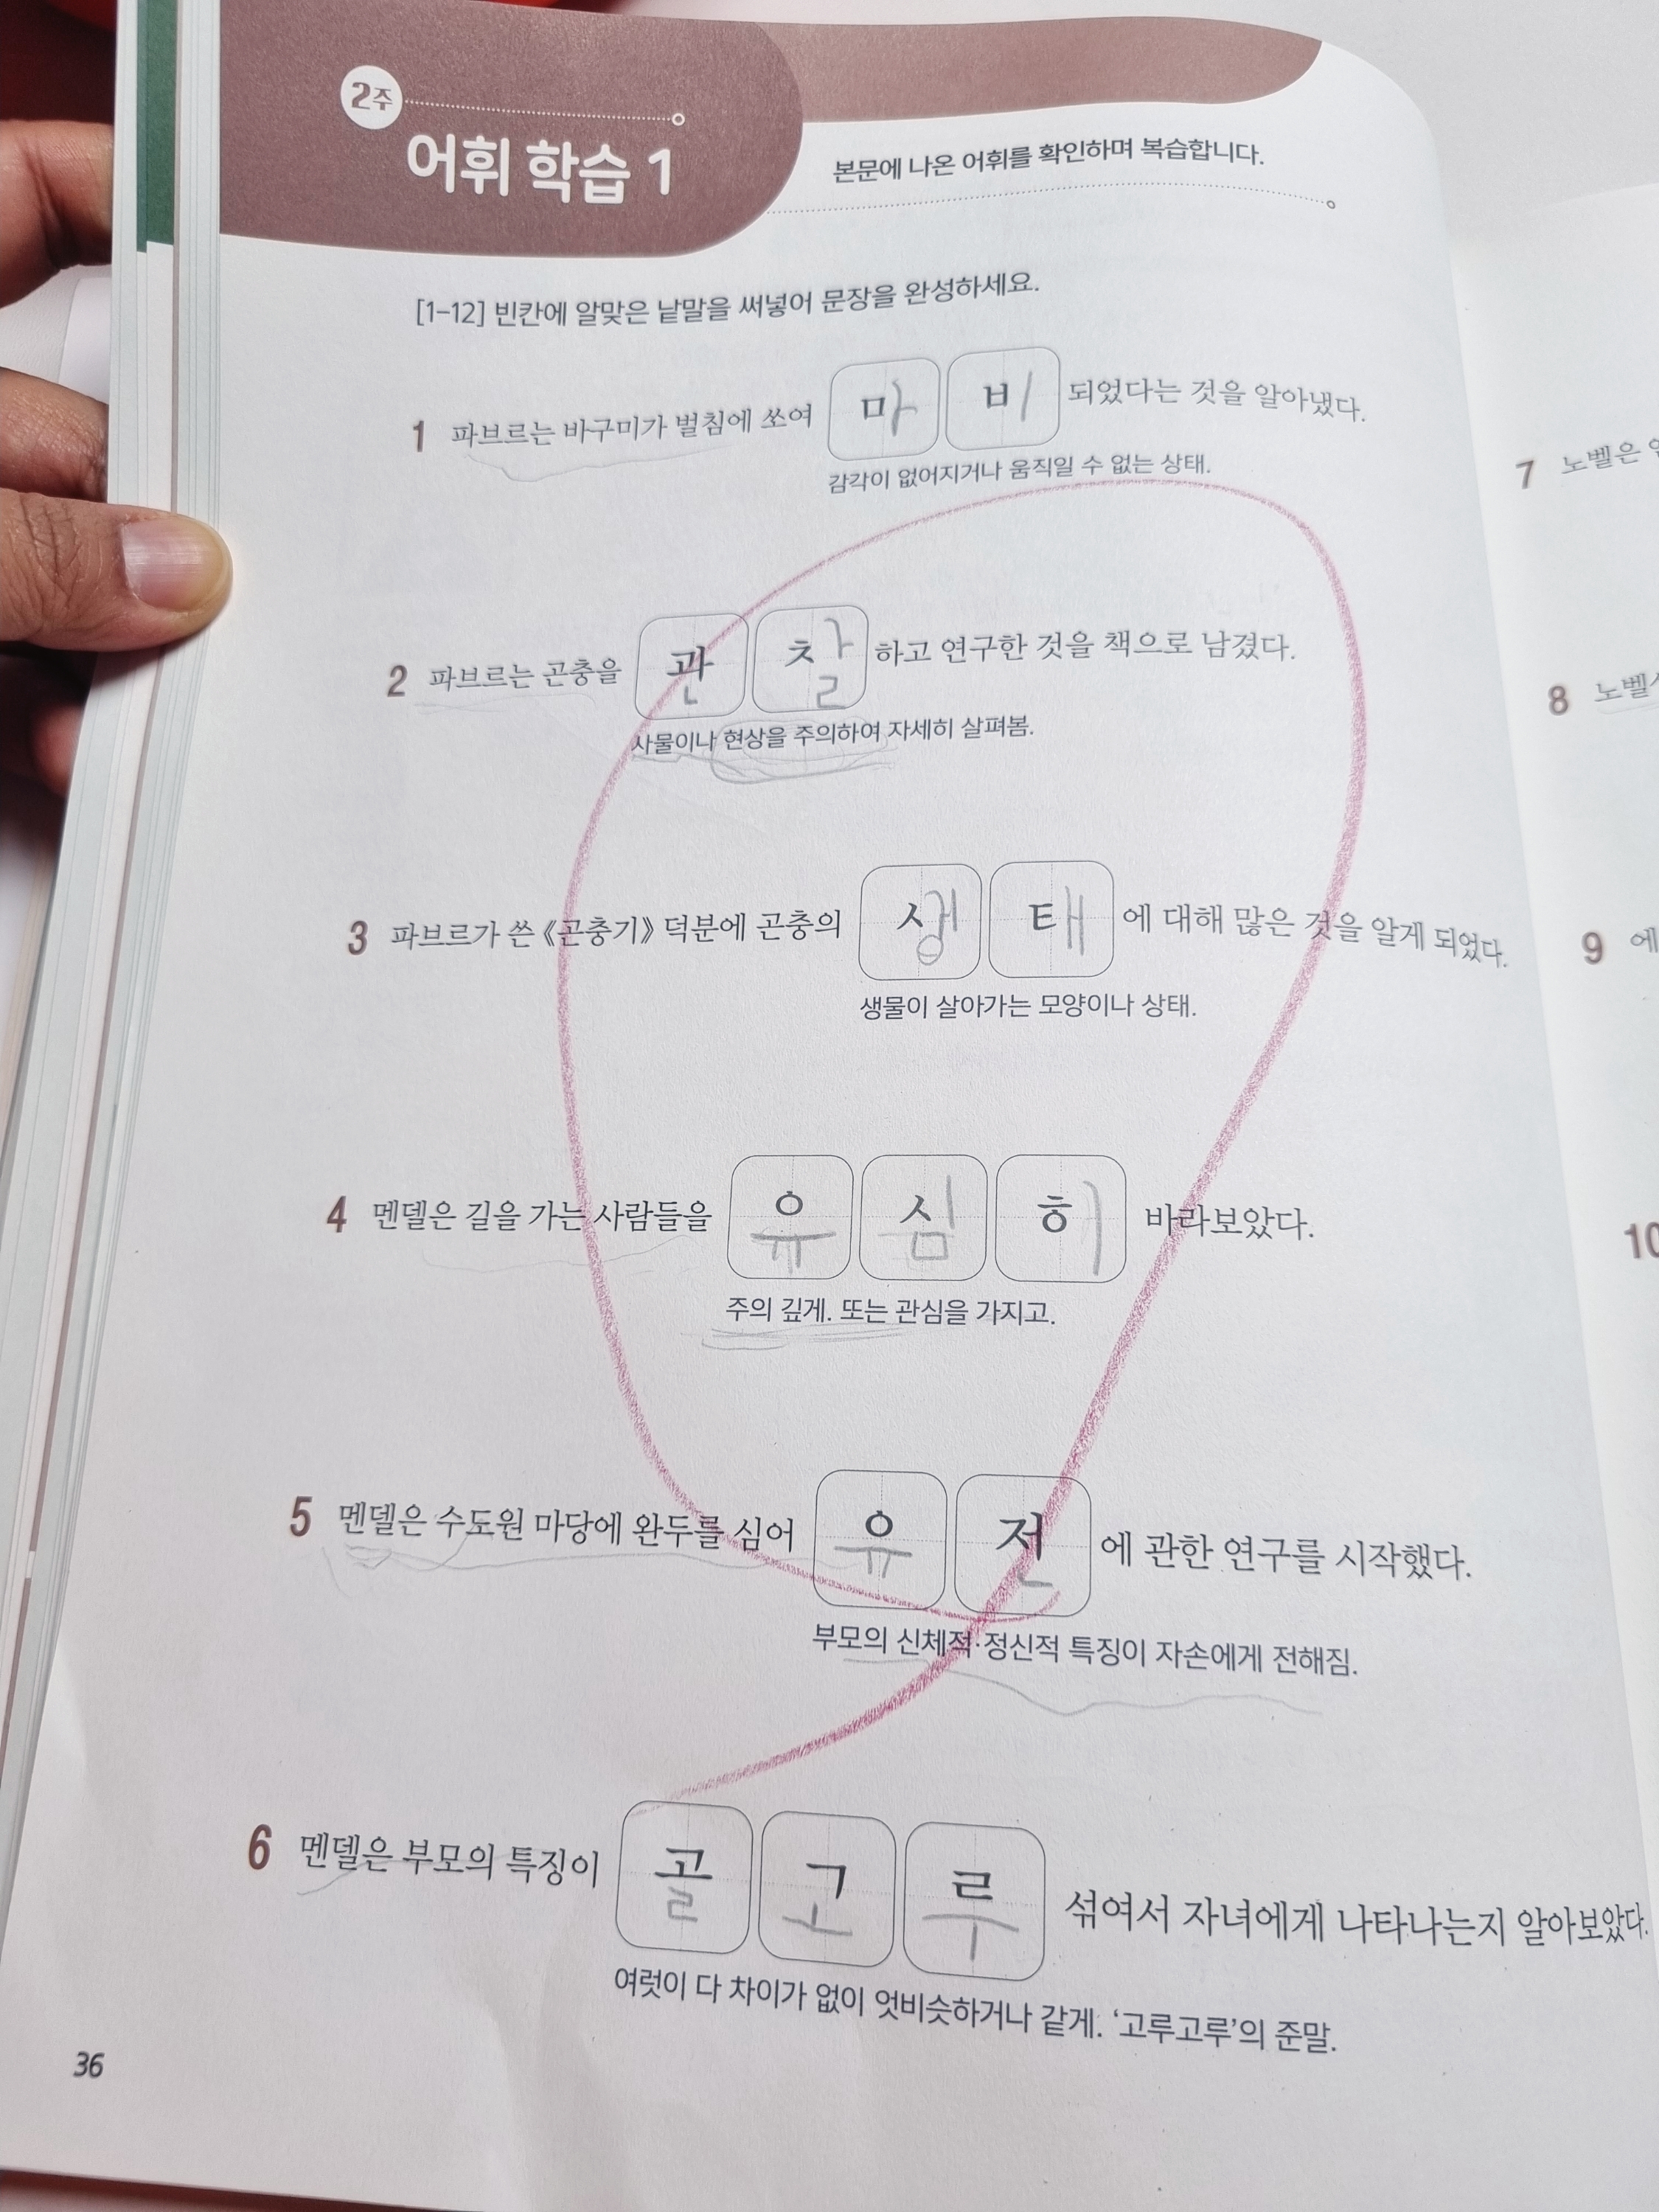 2주
어휘 학습 1
본문에 나온 어휘를 확인하며 복습합니다.
[1-12] 빈칸에 알맞은 낱말을 써넣어 문장을 완성하세요.
1 파브르는 바구미가 벌침에 쏘여 마비 되었다는 것을 알아냈다.
감각이 없어지거나 움직일 수 없는 상태.
2 파브르는 곤충을 관찰 하고 연구한 것을 책으로 남겼다.
사물이나 현상을 주의하여 자세히 살펴봄.
3 파브르가 쓴 《곤충기》 덕분에 곤충의 생태 에 대해 많은 것을 알게 되었다.
생물이 살아가는 모양이나 상태.
4 멘델은 길을 가는 사람들을 유심히 바라보았다.
주의 깊게. 또는 관심을 가지고.
5 멘델은 수도원 마당에 완두를 심어 유전 에 관한 연구를 시작했다.
부모의 신체적·정신적 특징이 자손에게 전해짐.
6 멘델은 부모의 특징이 골고루 섞여서 자녀에게 나타나는지 알아보았다.
여럿이 다 차이가 없이 엇비슷하거나 같게. ‘고루고루’의 준말.
36
7 노벨은
8 노벨
9 에
10